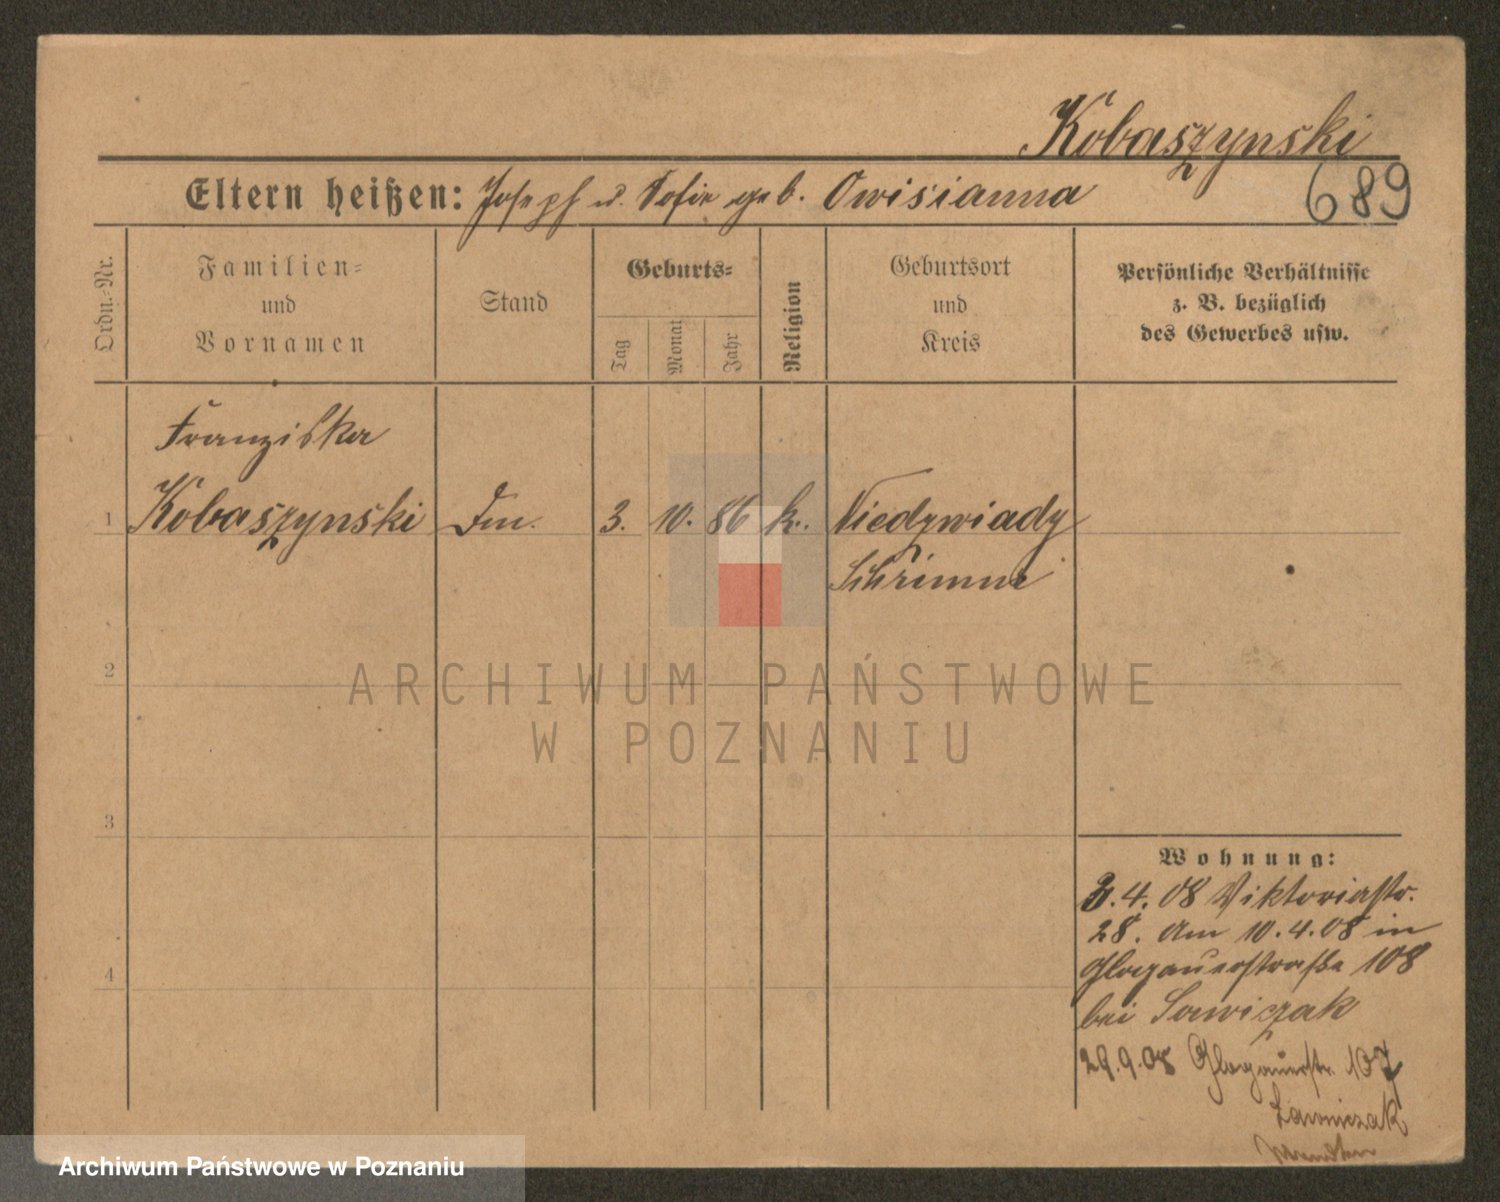 Kobaszynski
689
Eltern heißen: Joseph u. Sofie geb. Owisianna
Ordn.-Nr.
Familien-
und
Vornamen
Stand
Geburts-
Tag
Monat
Jahr
Religion
Geburtsort
und
Kreis
Persönliche Verhältnisse
z. B. bezüglich
des Gewerbes usw.
Franziska
1 Kobaszynski Dm. 3. 10. 86 k. Niedzwiady
Schrimm
2
ARCHIWUM PAŃSTWOWE
W POZNANIU
3
Wohnung:
3.4.08 Viktoriastr.
28. Am 10.4.08 in
Glogauerstraße 108
bei Sawiczak
4
29.9.08 Glogauerstr. 107
Ławniczak
Archiwum Państwowe w Poznaniu